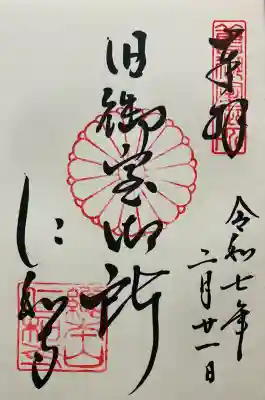 奉拝
令和七年
二月廿一日
旧御室御所
仁和寺